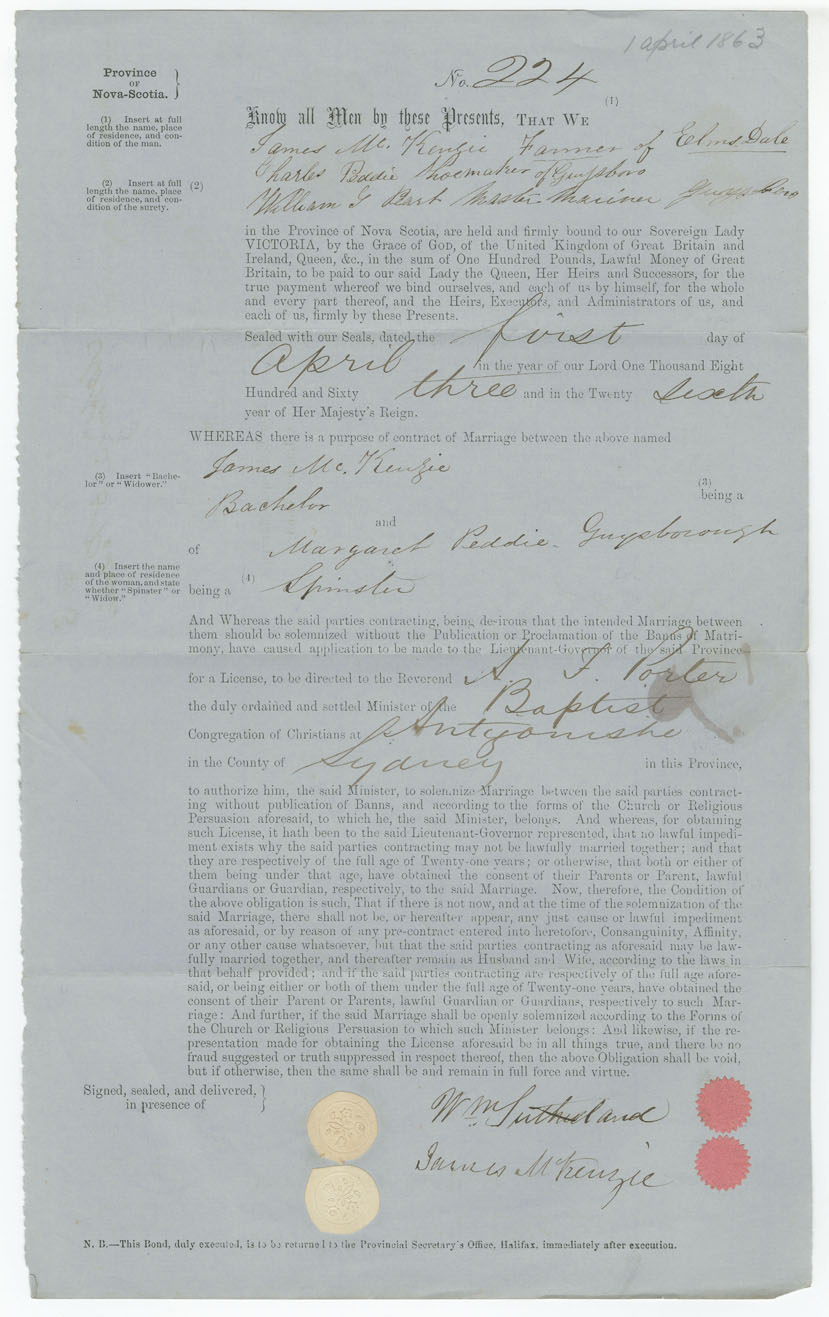 1 april 1863
Province
OF
Nova-Scotia.
No. 224
(1) Insert at full
length the name, place
of residence, and con-
dition of the man.
Know all Men by these Presents, THAT WE (1)
James Mc. Kenzie Farmer of Elms Dale
Charles Peddie Shoemaker of Guysboro
(2) Insert at full
length the name, place
of residence, and con-
dition of the surety.
(2)
William G Master Mariner Guysboro
in the Province of Nova Scotia, are held and firmly bound to our Sovereign Lady
VICTORIA, by the Grace of God, of the United Kingdom of Great Britain and
Ireland, Queen, &c., in the sum of One Hundred Pounds, Lawful Money of Great
Britain, to be paid to our said Lady the Queen, Her Heirs and Successors, for the
true payment whereof we bind ourselves, and each of us by himself, for the whole
and every part thereof, and the Heirs, Executors, and Administrators of us, and
each of us, firmly by these Presents.
Sealed with our Seals, dated the first day of
April in the year of our Lord One Thousand Eight
Hundred and Sixty three and in the Twenty sixth
year of Her Majesty's Reign.
WHEREAS there is a purpose of contract of Marriage between the above named
James Mc. Kenzie
(3) Insert "Bache-
lor" or "Widower."
(3)
being a
Bachelor
and
of Margaret Peddie - Guysborough
(4) Insert the name
and place of residence
of the woman, and state
whether "Spinster" or
"Widow."
being a (4) Spinster
And Whereas the said parties contracting, being desirous that the intended Marriage between
them should be solemnized without the Publication or Proclamation of the Banns of Matri-
mony, have caused application to be made to the Lieutenant-Governor of the said Province
for a License, to be directed to the Reverend A. F. Porter
the duly ordained and settled Minister of the Baptist
Congregation of Christians at Antigonishe
in the County of Sydney in this Province,
to authorize him, the said Minister, to solemnize Marriage between the said parties contract-
ing without publication of Banns, and according to the forms of the Church or Religious
Persuasion aforesaid, to which he, the said Minister, belongs. And whereas, for obtaining
such License, it hath been to the said Lieutenant-Governor represented, that no lawful impedi-
ment exists why the said parties contracting may not be lawfully married together; and that
they are respectively of the full age of Twenty-one years; or otherwise, that both or either of
them being under that age, have obtained the consent of their Parents or Parent, lawful
Guardians or Guardian, respectively, to the said Marriage. Now, therefore, the Condition of
the above obligation is such, That if there is not now, and at the time of the solemnization of the
said Marriage, there shall not be, or hereafter appear, any just cause or lawful impediment
as aforesaid, or by reason of any pre-contract entered into heretofore, Consanguinity, Affinity,
or any other cause whatsoever, but that the said parties contracting as aforesaid may be law-
fully married together, and thereafter remain as Husband and Wife, according to the laws in
that behalf provided; and if the said parties contracting are respectively of the full age afore-
said, or being either or both of them under the full age of Twenty-one years, have obtained the
consent of their Parent or Parents, lawful Guardian or Guardians, respectively to such Mar-
riage: And further, if the said Marriage shall be openly solemnized according to the Forms of
the Church or Religious Persuasion to which such Minister belongs: And likewise, if the re-
presentation made for obtaining the License aforesaid be in all things true, and there be no
fraud suggested or truth suppressed in respect thereof, then the above Obligation shall be void,
but if otherwise, then the same shall be and remain in full force and virtue.
Signed, sealed, and delivered,
in presence of
Wm Sutherland
James McKenzie
N. B.—This Bond, duly executed, is to be returned to the Provincial Secretary's Office, Halifax, immediately after execution.